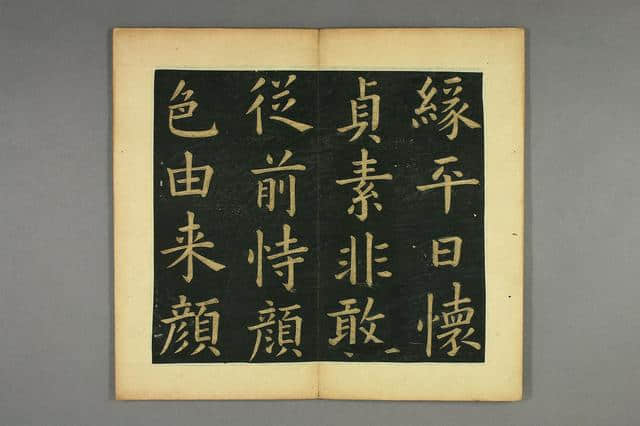 緣平日懷
貞素非敢
從前恃顏
色由来顏